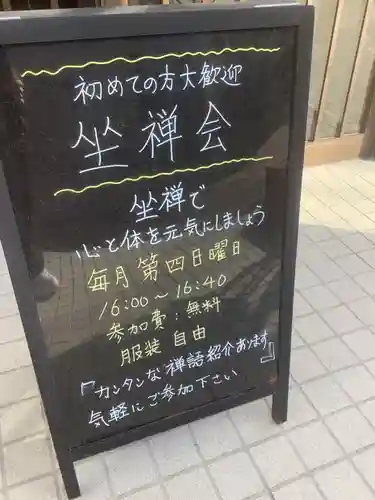 初めての方大歓迎
坐禅会
坐禅で
心と体を元気にしましょう
毎月第四日曜日
16:00～16:40
参加費:無料
服装 自由
『カンタンな禅語紹介あります』
気軽にご参加下さい